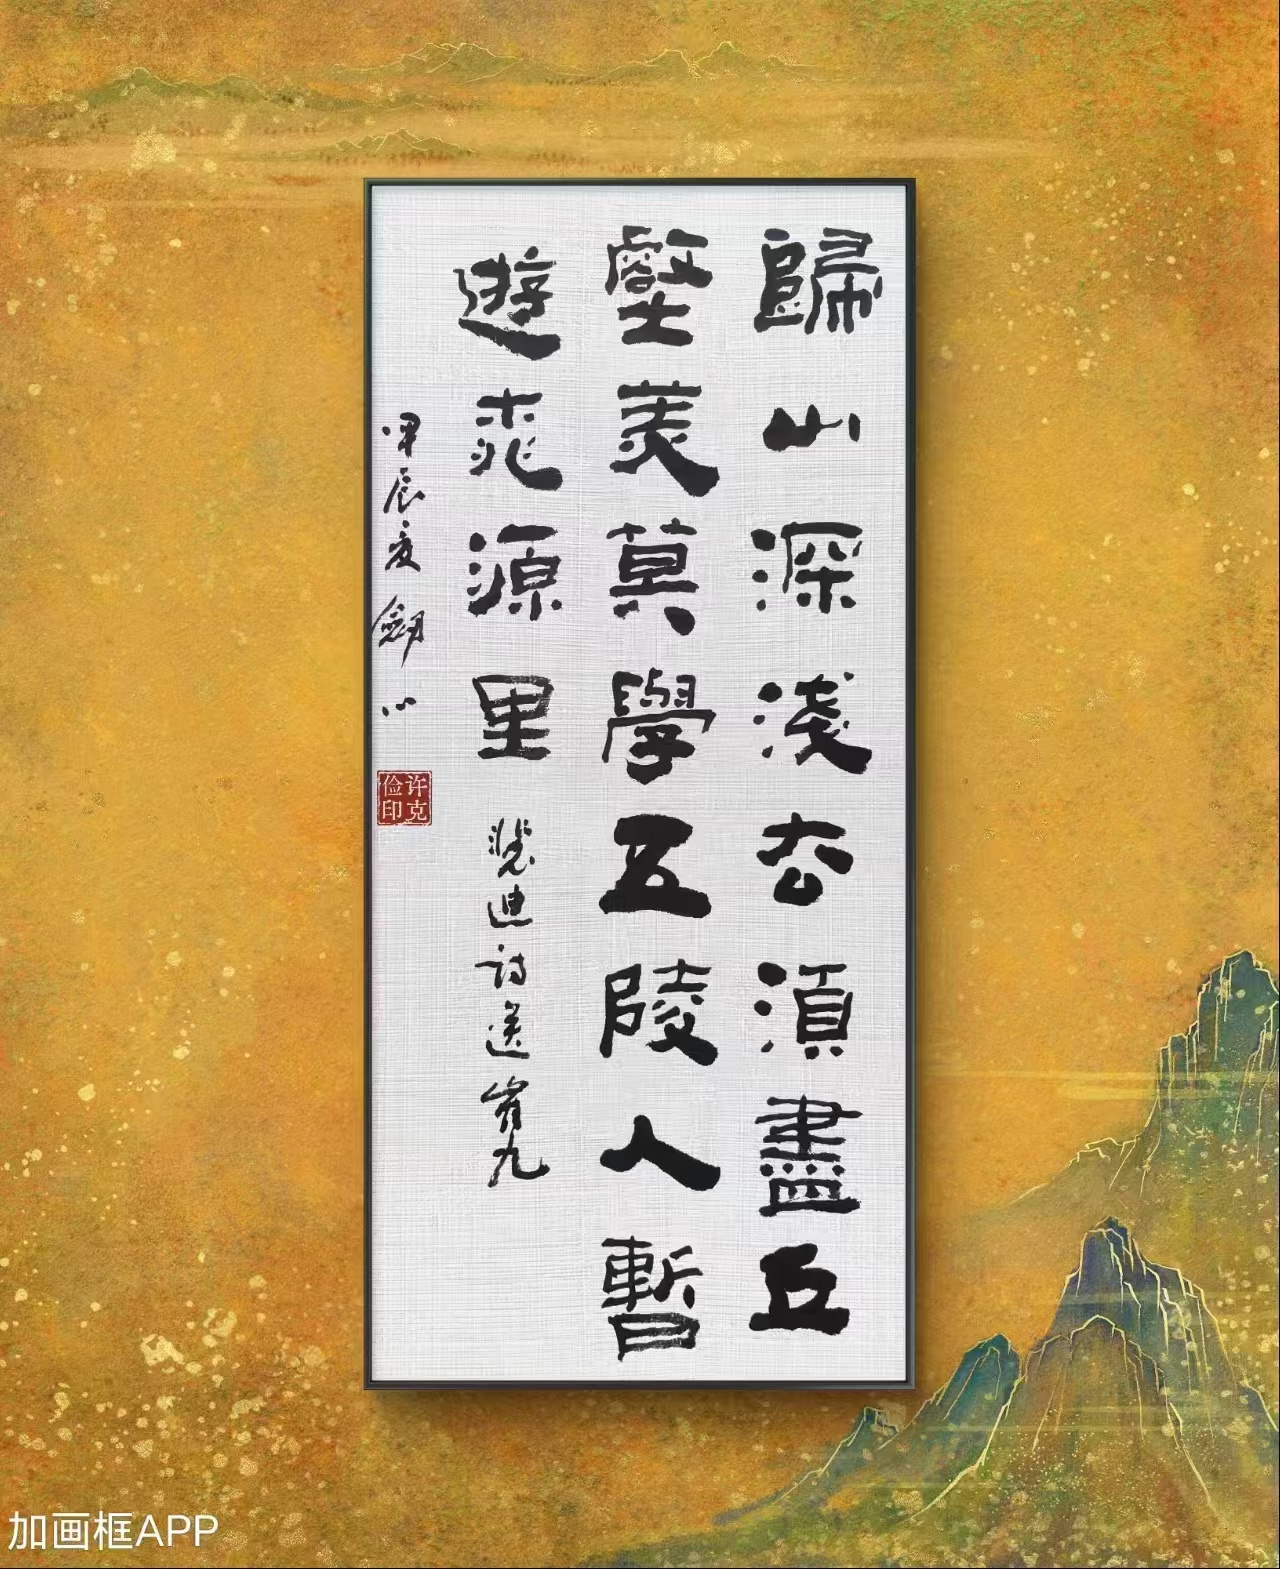 歸山深淺去湏盡丘
壑美莫學五陵人暫
遊桃源里 裴迪诗送崔九
甲辰夏 劍心
许克俭印
加画框APP